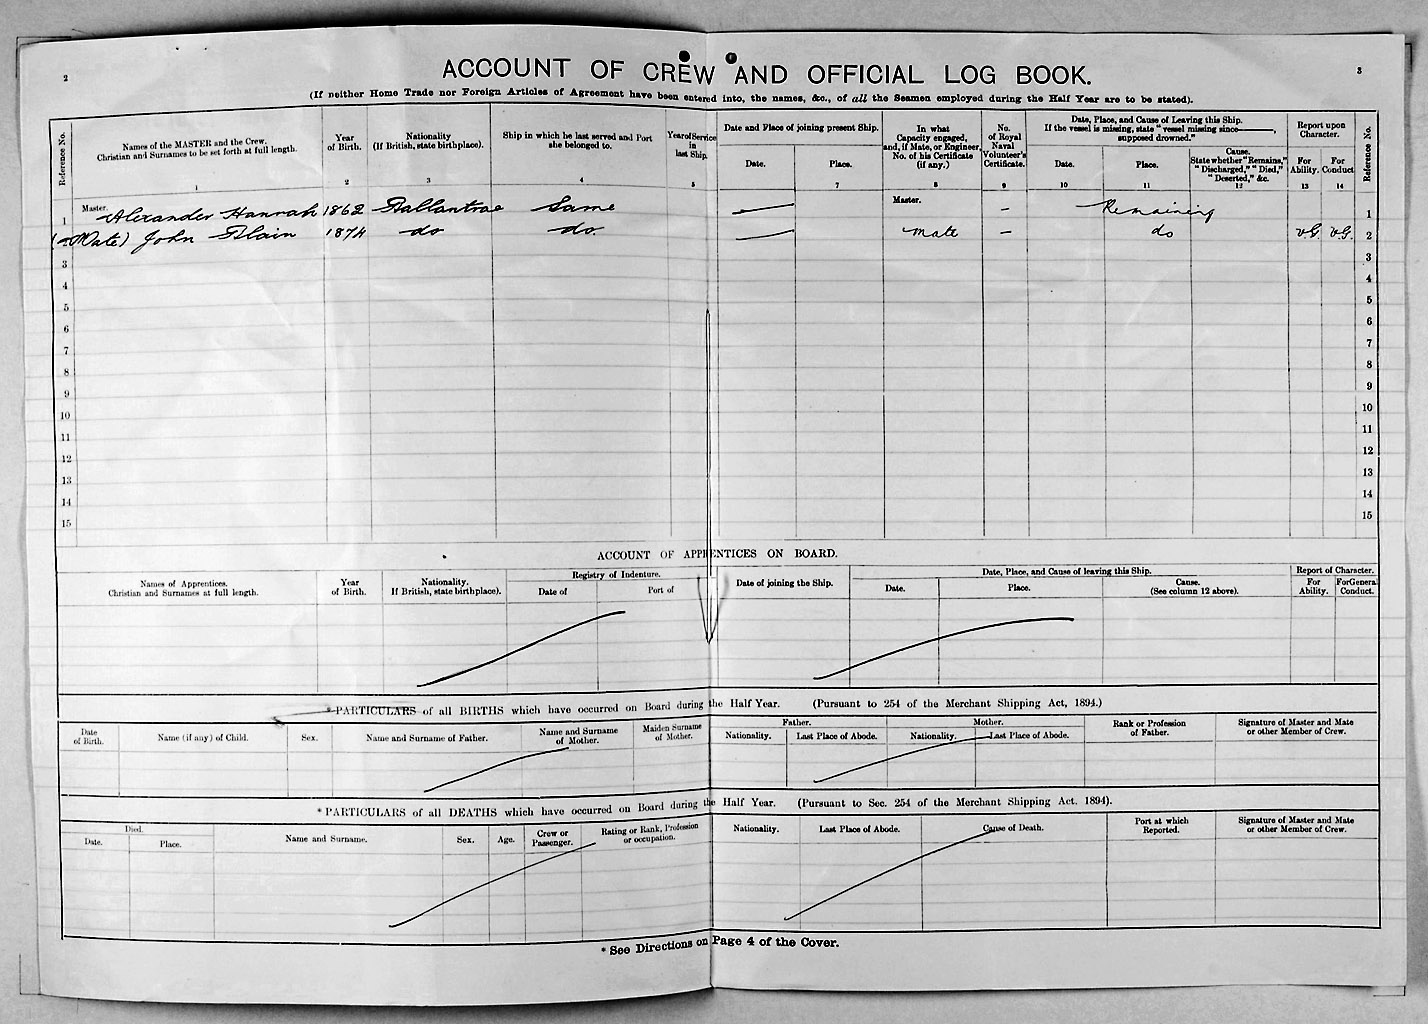 2
3
ACCOUNT OF CREW AND OFFICIAL LOG BOOK.
(If neither Home Trade nor Foreign Articles of Agreement have been entered into, the names, &c., of all the Seamen employed during the Half Year are to be stated).
Reference No.
Names of the MASTER and the Crew.
Christian and Surnames to be set forth at full length.
1
Year of Birth.
2
Nationality
(If British, state birthplace).
3
Ship in which he last served and Port she belonged to.
4
Years of Service in last Ship.
5
Date and Place of joining present Ship.
Date.
Place.
7
In what Capacity engaged, and, if Mate, or Engineer, No. of his Certificate (if any.)
8
No. of Royal Naval Volunteer's Certificate.
9
Date, Place, and Cause of Leaving this Ship.
If the vessel is missing, state "vessel missing since———, supposed drowned."
Date.
10
Place.
11
Cause.
State whether "Remains," "Discharged," "Died," "Deserted," &c.
12
Report upon Character.
For Ability.
13
For Conduct
14
Reference No.
1 Master. Alexander Hannah 1862 Ballantrae Same — Master. — Remaining 1
(Mate) John Blain 1874 do do. — Mate — do v.G. v.G. 2
3 3
4 4
5 5
6 6
7 7
8 8
9 9
10 10
11 11
12 12
13 13
14 14
15 15
ACCOUNT OF APPRENTICES ON BOARD.
Names of Apprentices.
Christian and Surnames at full length.
Year of Birth.
Nationality.
If British, state birthplace).
Registry of Indenture.
Date of
Port of
Date of joining the Ship.
Date, Place, and Cause of leaving this Ship.
Date.
Place.
Cause.
(See column 12 above).
Report of Character.
For Ability.
For General Conduct.
*PARTICULARS of all BIRTHS which have occurred on Board during the Half Year. (Pursuant to 254 of the Merchant Shipping Act, 1894.)
Date of Birth.
Name (if any) of Child.
Sex.
Name and Surname of Father.
Name and Surname of Mother.
Maiden Surname of Mother.
Father.
Nationality.
Last Place of Abode.
Mother.
Nationality.
Last Place of Abode.
Rank or Profession of Father.
Signature of Master and Mate or other Member of Crew.
* PARTICULARS of all DEATHS which have occurred on Board during the Half Year. (Pursuant to Sec. 254 of the Merchant Shipping Act. 1894).
Died.
Date.
Place.
Name and Surname.
Sex.
Age.
Crew or Passenger.
Rating or Rank, Profession or occupation.
Nationality.
Last Place of Abode.
Cause of Death.
Port at which Reported.
Signature of Master and Mate or other Member of Crew.
* See Directions on Page 4 of the Cover.